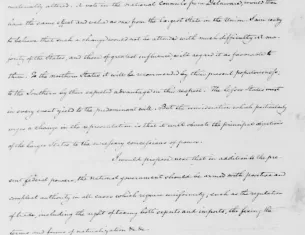 materially altered. A vote in the national Councils from Delaware, would then
have the same effect and value as one from the largest State in the Union. I am ready
to believe that such a change would not be attended with much difficulty. A ma-
jority of the States, and those of greatest influence, will regard it as favorable to
them. To the northern States it will be recommended by their present populousness;
to the Southern by their expected advantage in this respect. The lesser States must
in every event yield to the predominant will. But the consideration which particularly
urges a change in the representation is that it will obviate the principal objections
of the larger States to the necessary concessions of power.
I would propose next that in addition to the pre-
sent federal powers, the national Government should be armed with positive and
compleat authority in all cases which require uniformity; such as the regulation
of trade, including the right of taxing both exports and imports, the fixing the
terms and forms of naturalization &c &c.